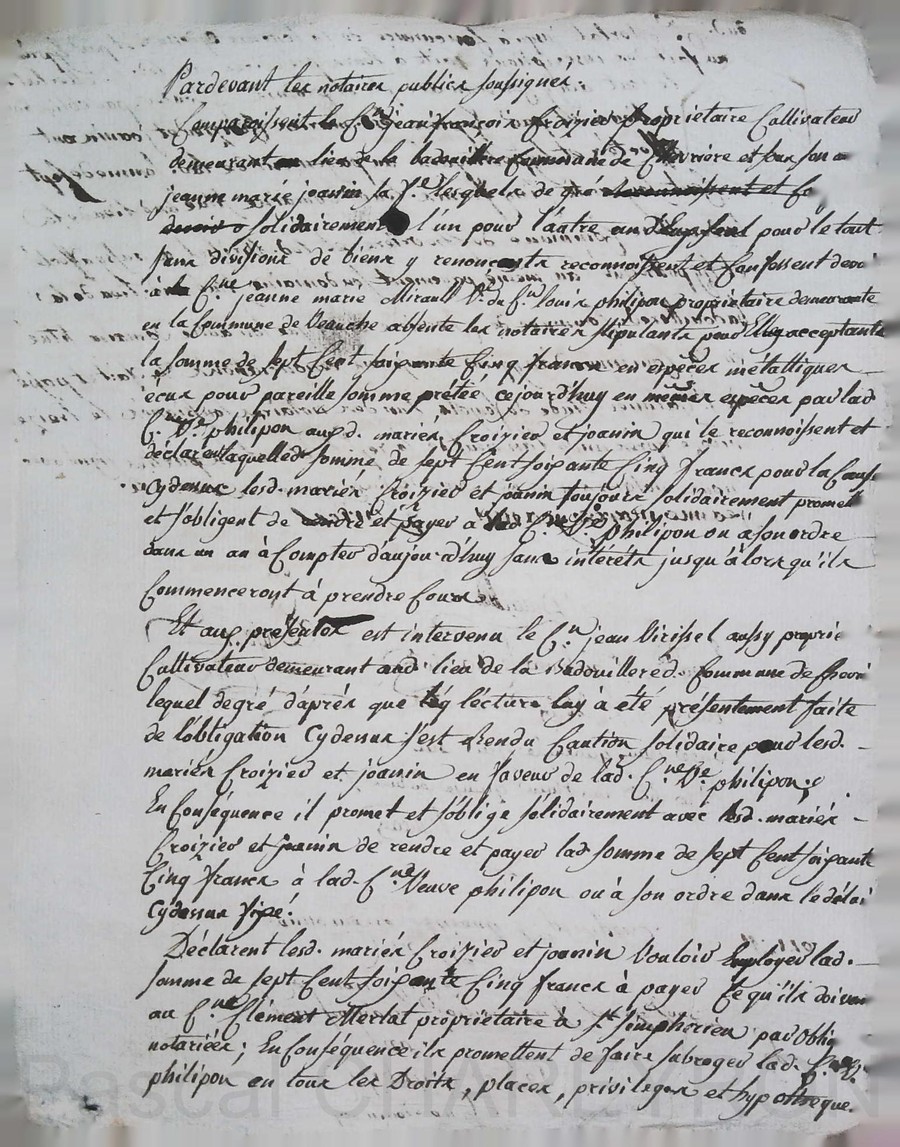 Pardevant les notaires publics soussignés.
Comparaissent le Cen jean francois Croizier Proprietaire Cultivateur
demeurant au lieu de la badouillere Commune de Chevriere et sous son a
jeanne marie joanin sa fe. lesquels de gré reconnoissent et fe
devoir solidairement l'un pour l'autre un d'Eux seul pour le tout
sans divisions de biens y renoncants reconnoissent et Confessent devoir
à la Cne jeanne marie Mirault Ve. du Cn louis philipon propriétaire demeurante
en la Commune de Veauche absente les notaires stipulants pour Elle acceptants
la somme de sept Cent soixante Cinq francs en espèces métalliques
écus pour pareille somme prêtée cejourd'huy en mêmes espèces par lad
C. Ve philipon auxd. mariés Croizier et joanin qui le reconnoissent et
déclarent laquelle d. somme de sept Cent soixante Cinq francs pour la Cause
Cydessus lesd. mariés Croizier et janin toujours solidairement promett
et s'obligent de rendre et payer a lad. Cne Ve philipon ou a son ordre
dans un an à Compter d'aujourd'huy sans intérêts jusqu'à lors qu'ils
Commenceront à prendre Cours
Et aux présentes est intervenu le Cn jean Virissel aussy proprié
Cultivateur demeurant aud. lieu de la Badouillere d. Commune de Chevri
lequel de gré d'après que lecture luy à été présentement faite
de l'obligation Cydessus s'est Rendu Caution solidaire pour lesd.
mariés Croizier et joanin en faveur de lad. Cne Ve philipon;
En Conséquence il promet et s'oblige solidairement avec lesd. mariés
Croizier et joanin de rendre et payer lad. somme de sept Cent soixante
Cinq francs à lad. Cne Veuve philipon ou à son ordre dans le délai
Cydessus fixé.
Déclarent lesd. mariés Croizier et joanin Vouloir Employer lad.
somme de sept Cent soixante Cinq francs à payer Ce qu'ils doivent
au Cen Clément Merlat propriétaire à St simphorien par oblig
notariées; En Conséquence ils promettent de faire subroger lad. Cne Ve
philipon en tous les Droits, places, privileges et hypotheque.